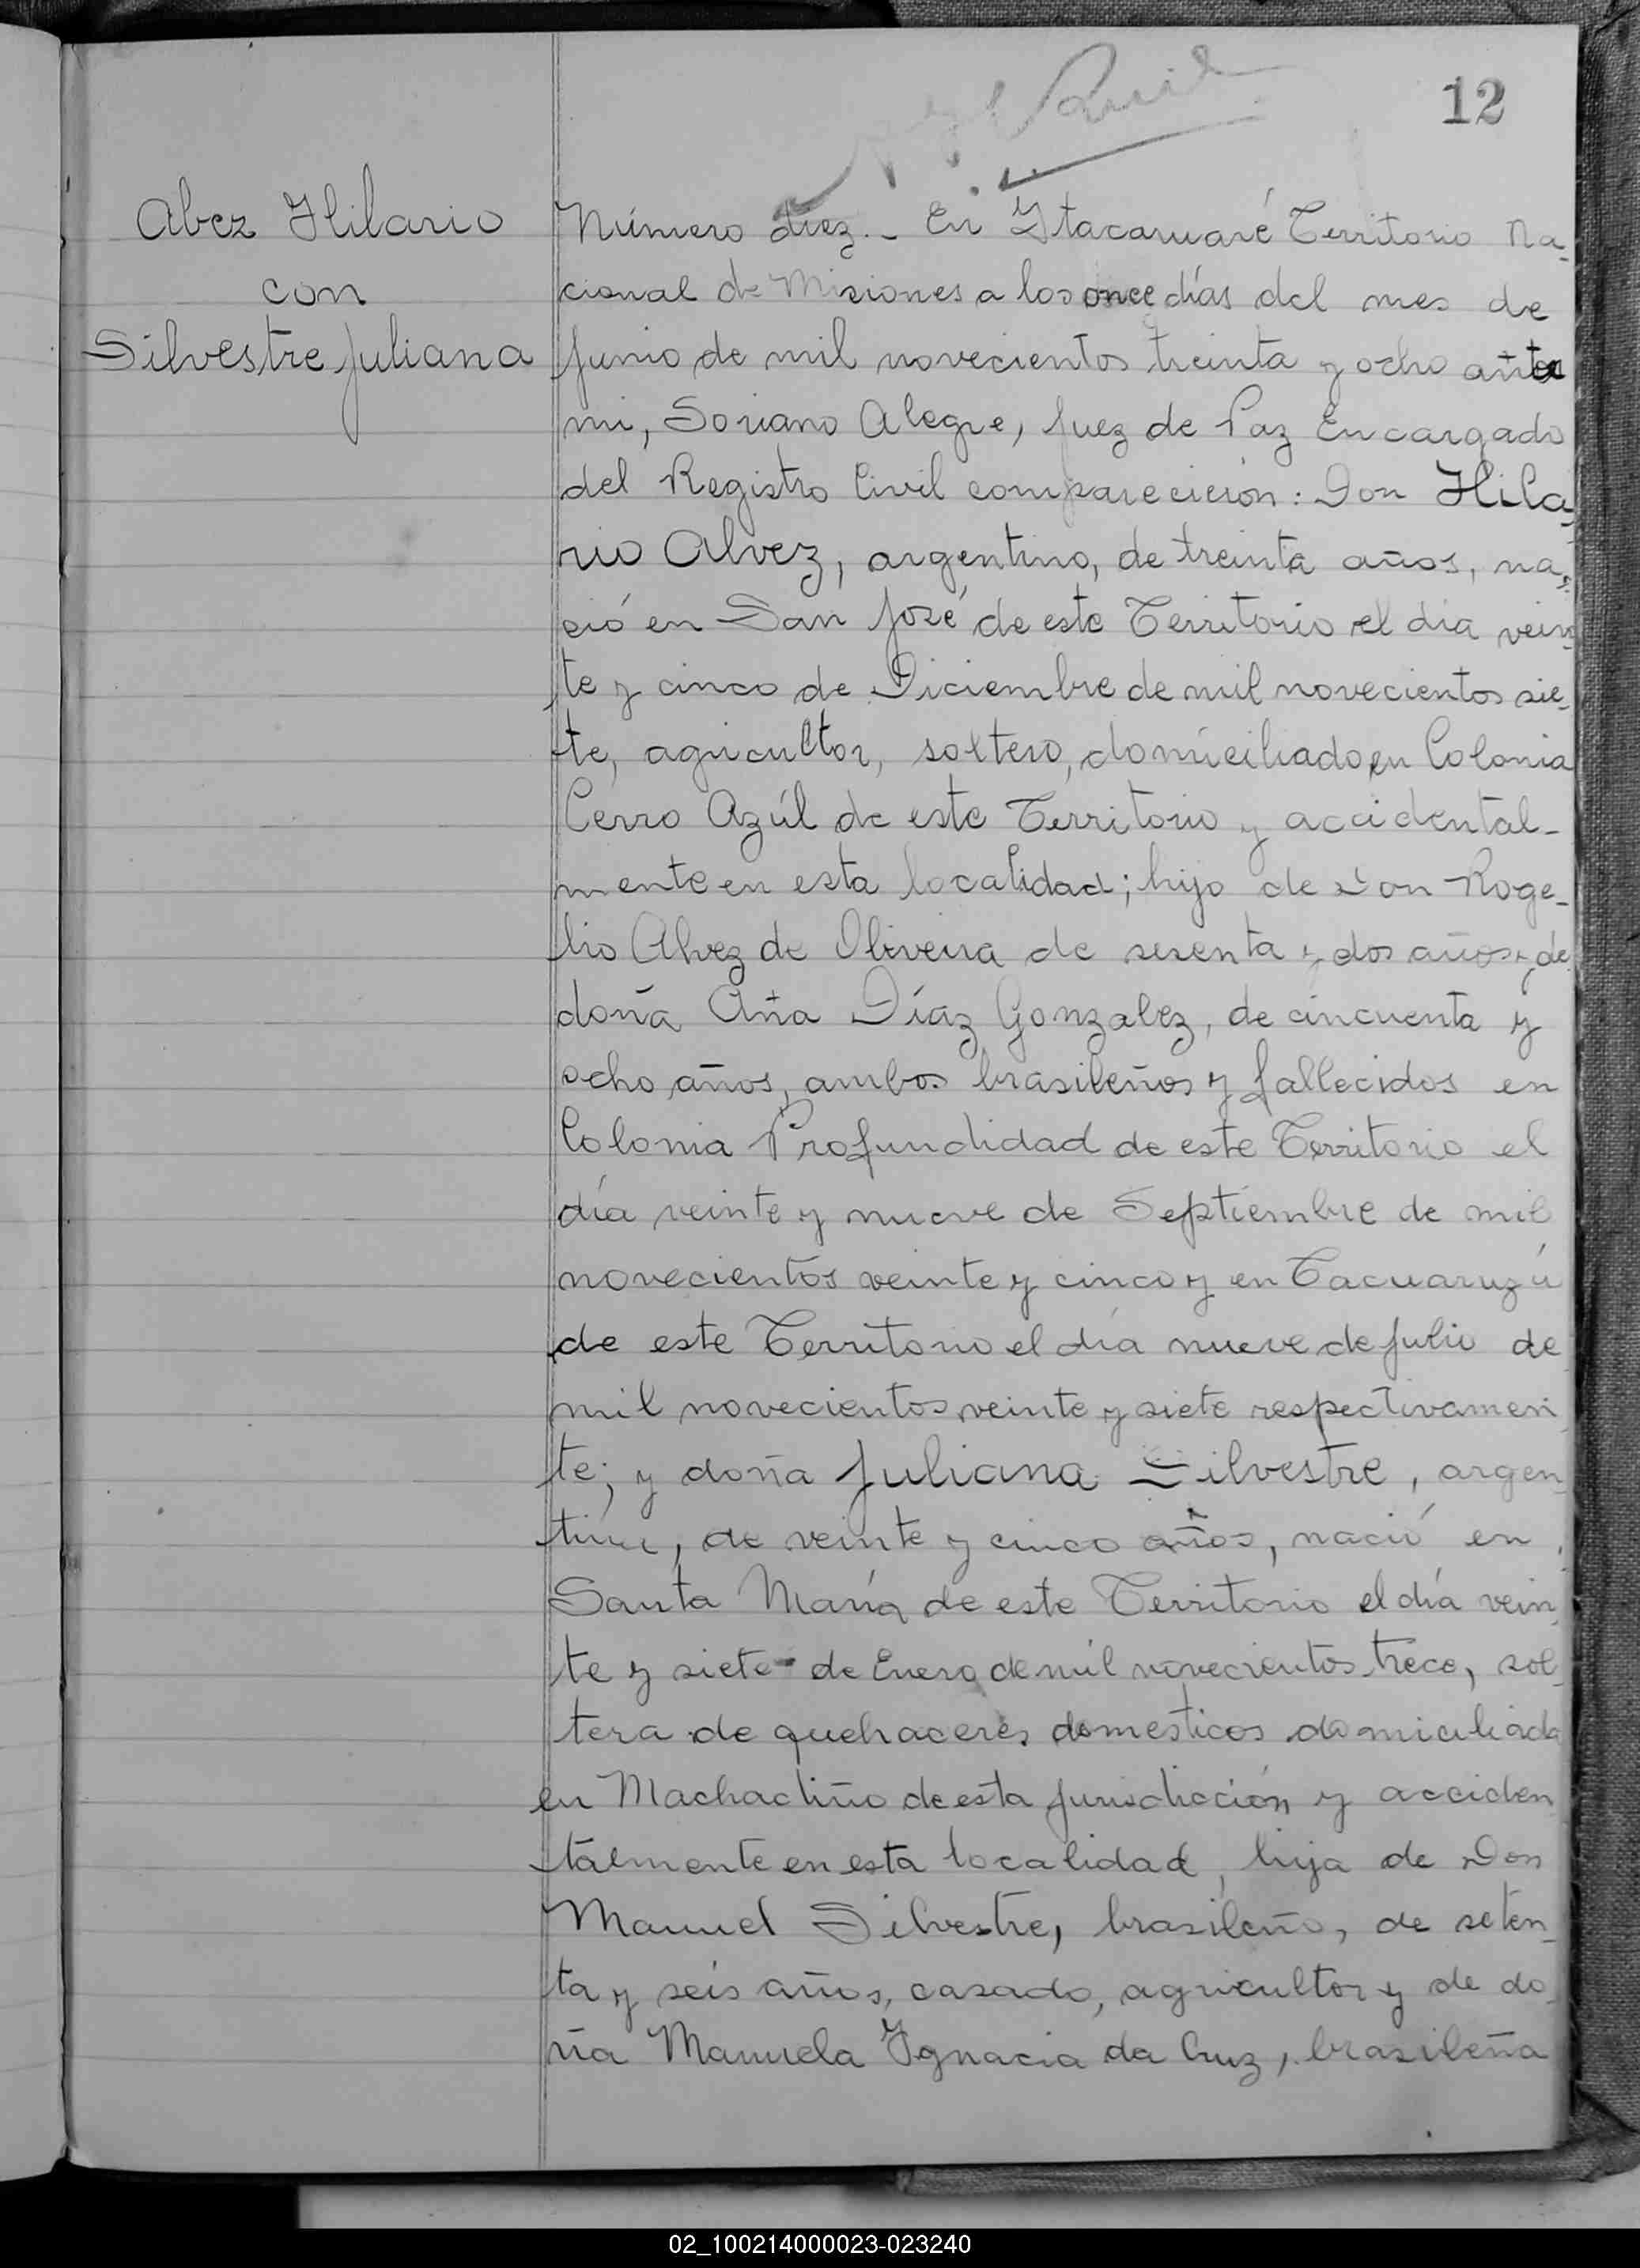 12
Abez Hilario
con
Silvestre Juliana
Número diez.- En Ytacaruaré Territorio Na-
cional de Misiones a los once días del mes de
Junio de mil novecientos treinta y ocho ante
mi, Soriano Alegre, Juez de Paz Encargado
del Registro Civil comparecieron: Don Hila-
rio Alvez, argentino, de treinta años, na-
ció en San José de este Territorio el día vein-
te y cinco de Diciembre de mil novecientos sie-
te, agricultor, soltero, domiciliado en Colonia
Cerro Azúl de este Territorio y accidental-
mente en esta localidad; hijo de Don Roge-
lio Alvez de Oliveira de sesenta y dos años y de
doña Aña Díaz Gonzalez, de cincuenta y
ocho años, ambos brasileños y fallecidos en
Colonia Profundidad de este Territorio el
día veinte y nueve de Septiembre de mil
novecientos veinte y cinco y en Tacuaruzú
de este Territorio el día nueve de Julio de
mil novecientos veinte y siete respectivamen
te; y doña Juliana Silvestre, argen-
tina, de veinte y cinco años, nació en
Santa María de este Territorio el día vein-
te y siete de Enero de mil novecientos trece, sol-
tera de quehaceres domesticos domiciliada
en Machadiño de esta jurisdicción y acciden
talmente en esta localidad, hija de Don
Manuel Silvestre, brasileño, de seten-
ta y seis años, casado, agricultor y de do-
ña Manuela Ygnacia da Cruz, brasileña
02_100214000023-023240